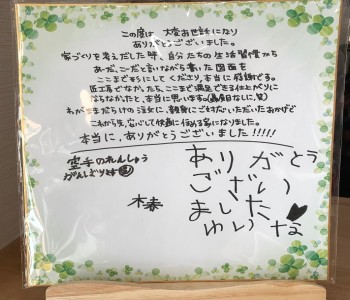 この度は、大変お世話になり
ありがとうございました。
家づくりを考えだした時、自分たちの生活習慣から
あーだ、こーだと言いながら書いた図面を
ここまで形にして下さり、本当に感謝です。
匠工房でなかったら、ここまで満足できる仕上がりに
ならなかったと、本当に思います。
わがままだらけの3人に、親身にこたえていただいたおかげで
これから先、安心して快適に行ける家になりました。
本当に、ありがとうございました!!!!!
空手のれんしゅう
がんばります
ありがとう
ござい
ました
ゆいな